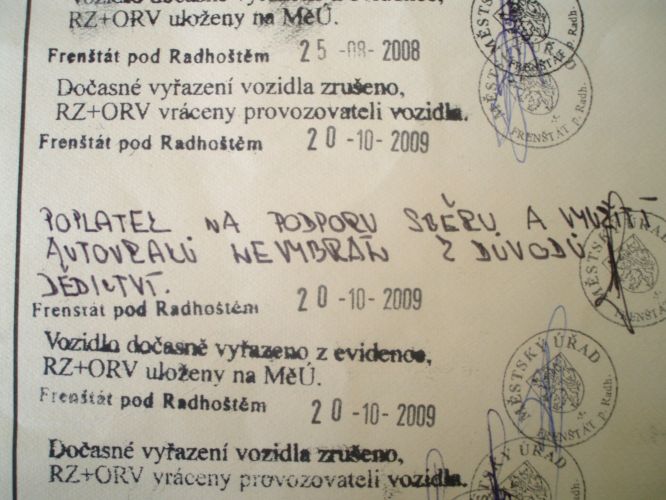 Vozidlo dočasně vyřazeno z evidence,
RZ+ORV uloženy na MěÚ.
Frenštát pod Radhoštěm 25-08-2008
Dočasné vyřazení vozidla zrušeno,
RZ+ORV vráceny provozovateli vozidla.
Frenštát pod Radhoštěm 20-10-2009
MĚSTSKÝ ÚŘAD
FRENŠTÁT p. Radh.
POPLATEK NA PODPORU SBĚRU A VYUŽITÍ
AUTOVRAKŮ NEVYBRÁN Z DŮVODU
DĚDICTVÍ.
Frenštát pod Radhoštěm 20-10-2009
MĚSTSKÝ ÚŘAD
FRENŠTÁT
Vozidlo dočasně vyřazeno z evidence,
RZ+ORV uloženy na MěÚ.
Frenštát pod Radhoštěm 20-10-2009
MĚSTSKÝ ÚŘAD
FRENŠTÁT p. Radh.
-5-
Dočasné vyřazení vozidla zrušeno,
RZ+ORV vráceny provozovateli vozidla.
MĚSTSKÝ ÚŘAD